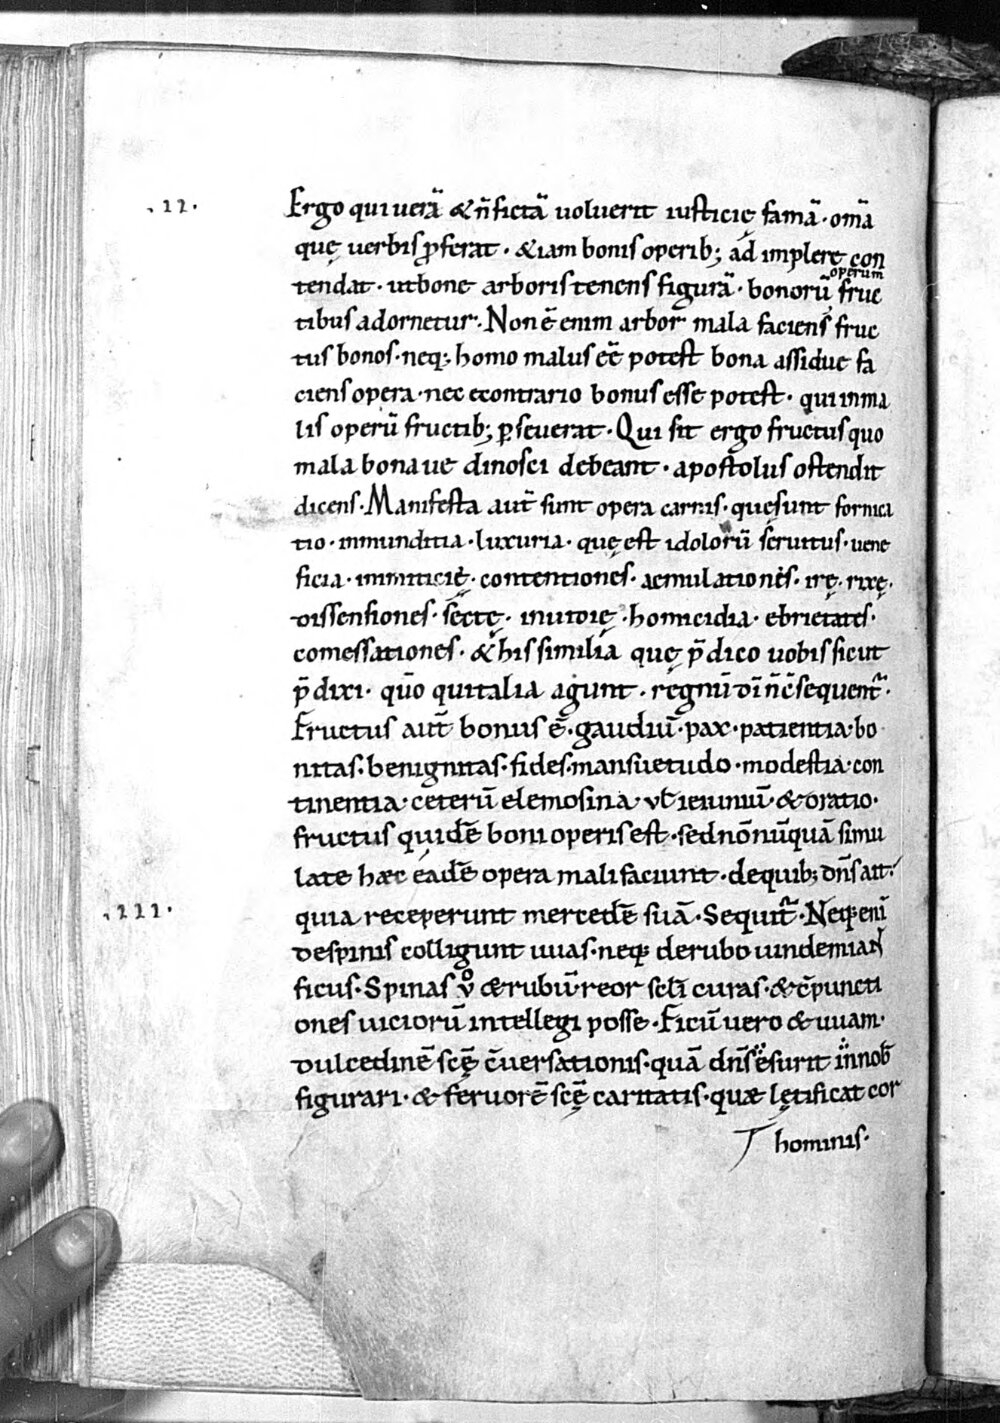 .II. Ergo qui uerā &n̄fictā uoluerit iusticię famā· om̄a
quę uerbis ꝓferat· &iam bonis operib; ad implere con
operum
tendat· utbone arboris tenens figurā· bonorū fruc
tibus adornetur· Non ē enim arbor mala faciens fruc
tus bonos· neq; homo malus eē̄ potest bona assidue fa
ciens opera· nec econtrario bonus esse potest· qui inma
lis operū fructib; ꝑseuerat· Qui sit ergo fructus quo
mala bona ue dinosci debeant· apostolus ostendit
dicens· Manifesta aut̄ sunt opera carnis· quęsunt fornica
tio· inmunditia· luxuria· quę est idolorū seruitus· uene
ficia· inimicicię· contentiones· aemulationes· irę· rixę·
dissensiones· sectę· inuidię· homicidia· ebrietates·
comessationes· & his similia quę p̄dico uobis sicut
p̄dixi· qūo qui talia agunt· regnū dī n̄ c̄sequent̄·
Fructus aut̄ bonus ē· gaudiū· pax· patientia· bo
nitas· benignitas· fides· mansuetudo· modestia· con
tinentia· ceterū elemosina· ut̄ ieiuniū· & oratio·
fructus quidē boni operis est· sed nōnūquā simu
late haec eadē opera mali faciunt· de quib; dn̄s ait·
.III. quia receperunt mercedē suā· Sequit̄· Neq; eni
de spinis colligunt uuas· neq; de rubo uindemiaɴ
ficus· Spinas v̊ & rubū· reor sclī curas· & c̄puncti
ones uiciorū intellegi posse· Ficū uero & uuam·
dulcedinē scę̄ c̄uersationis· quā dn̄s ēsurit in nob̄
figurari· & feruorē scę̄ caritatis· quae lętificat cor
hominis·